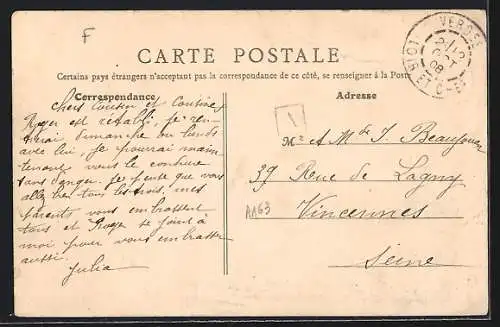 F
CARTE POSTALE
Certains pays étrangers n'acceptant pas la correspondance de ce côté, se renseigner à la Poste
Correspondance
Adresse
VERDES
LOIR ET CHER
OCT
08
1
Chers Cousin et Cousine
Roger est rétabli, je ren-
trerai dimanche ou lundi
avec lui, je pourrai main
tenant vous le conduire
sans danger. Je pense que vous
allez bien tous les trois, mes
parents vous embrassent
tous et Roger se joint à
moi pour vous embrasser
aussi.
Julia
Mr & Mde J. Beaujouan
39 Rue de Lagny
Vincennes
Seine
AA63